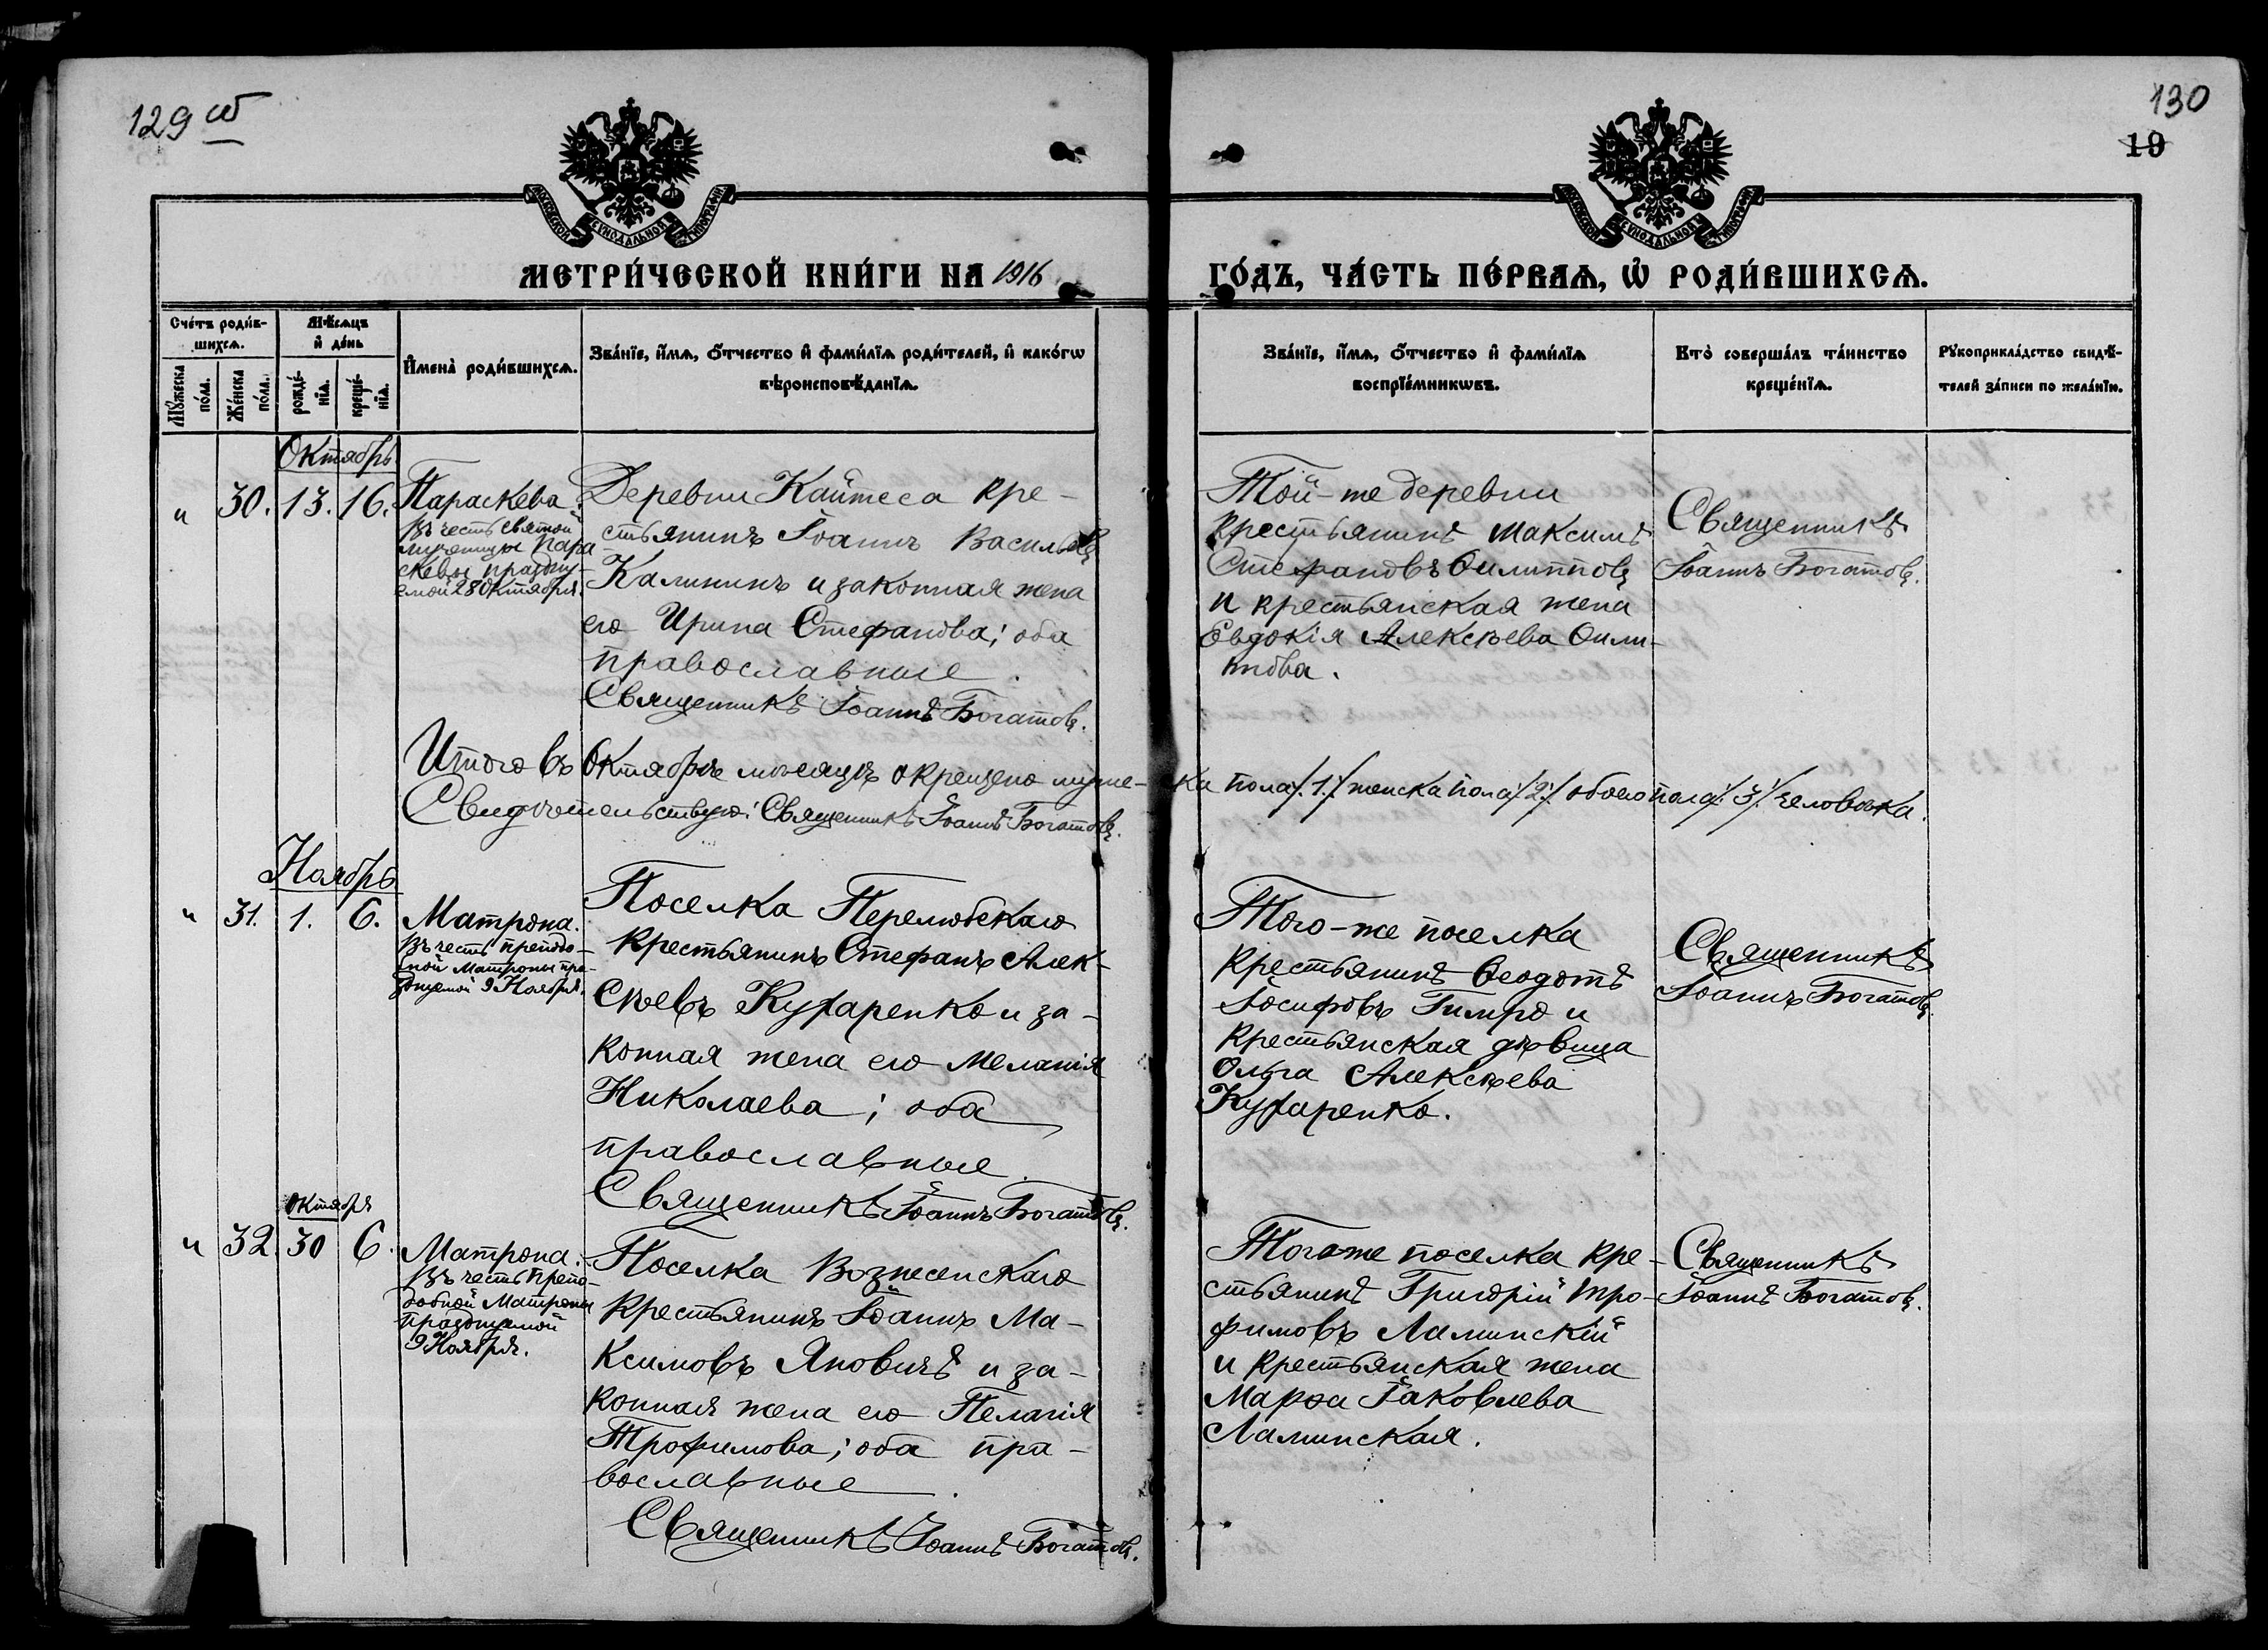 129 об
130
19
МОСКОВСКОЙ СѴНОДАЛЬНОЙ ТИПОГРАФІИ
МОСКОВСКОЙ СѴНОДАЛЬНОЙ ТИПОГРАФІИ
МЕТРИ́ЧЕСКОЙ КНИ́ГИ НА 1916
ГО́ДЪ, ЧА́СТЬ ПЕ́РВАѦ, Ѽ РОДИ́ВШИХСѦ.
Сче́тъ роди́в-
шихсѧ.
Мꙋ́жеска
по́ла.
Же́нска
по́ла.
Мѣ́сѧцъ
и҆ де́нь
рожде́-
нїѧ.
креще́-
нїѧ.
И҆мена̀ роди́вшихсѧ.
Зва́нїе, и҆́мѧ, ѻ҆́тчество и҆ фами́лїѧ роди́телей, и҆ како́гѡ
вѣроисповѣ́данїѧ.
Зва́нїе, и҆́мѧ, ѻ҆́тчество и҆ фами́лїѧ
воспрїе́мникѡвъ.
Кто̀ соверша́лъ та́инство
креще́нїѧ.
Рꙋкоприкла́дство свидѣ́-
телей за́писи по жела́нїю.
Октябрь
" 30. 13. 16. Параскева.
Въ честь святой
мученицы Пара-
скевы праздну-
емой 28 Октября.
Деревни Кайтеса кре-
стьянинъ Іоаннъ Васильевъ
Калининъ и законная жена
его Ирина Стефанова; оба
православные.
Священникъ Іоаннъ Богатовъ.
Той-же деревни
крестьянинъ Максимъ
Стефановъ Ѳилипповъ
и крестьянская жена
Евдокія Алексѣева Ѳили-
пова.
Священникъ
Іоаннъ Богатовъ.
Итого въ Октябрѣ мѣсяцѣ окрещено муже-ска пола /.1./ женска пола /.2./ обоего пола /.3./ человѣка.
Свидѣтельствую: Священникъ Іоаннъ Богатовъ.
Ноябрь
" 31. 1. 6. Матрона.
Въ честь преподо-
бной Матроны пра-
зднуемой 9 Ноября.
Поселка Перелюбскаго
крестьянинъ Стефанъ Алек-
сѣевъ Кухаренко и за-
конная жена его Меланія
Николаева; оба
православные.
Священникъ Іоаннъ Богатовъ.
Того-же поселка
крестьянинъ Ѳеодотъ
Іосифовъ Гимро и
крестьянская дѣвица
Ольга Алексѣева
Кухаренко.
Священникъ
Іоаннъ Богатовъ.
Октября
" 32. 30 6. Матрона.
Въ честь препо-
добной Матроны
празднуемой
9 Ноября.
Поселка Вознесенскаго
крестьянинъ Іоаннъ Ма-
ксимовъ Яновичъ и за-
конная жена его Пелагія
Трофимова; оба пра-
вославные.
Священникъ Іоаннъ Богатовъ.
Того же поселка кре-
стьянинъ Григорій Тро-
фимовъ Ламинскій
и крестьянская жена
Марѳа Іаковлева
Ламинская.
Священникъ
Іоаннъ Богатовъ.